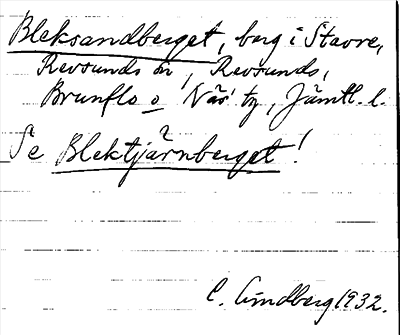 Bleksandberget, berg i Stavre,
Revsunds sn, Revsunds,
Brunflo o Näs' tg, Jämtl. l.
Se Blektjärnberget!
C. Lindberg 1932.